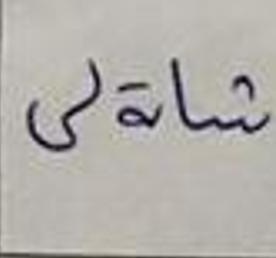 شاة لى